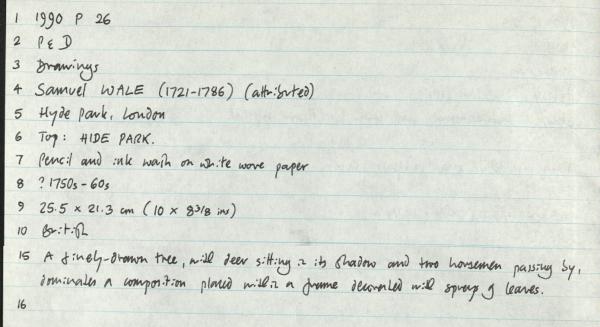 1 1990 P 26
2 P & D
3 Drawings
4 Samuel WALE (1721-1786) (attributed)
5 Hyde Park, London
6 Top: HIDE PARK.
7 Pencil and ink wash on white wove paper
8 ? 1750s - 60s
9 25.5 x 21.3 cm (10 x 8 3/8 ins)
10 British
15 A finely-drawn tree, with deer sitting in its shadow and two horsemen passing by,
dominates a composition placed within a frame decorated with sprays of leaves.
16